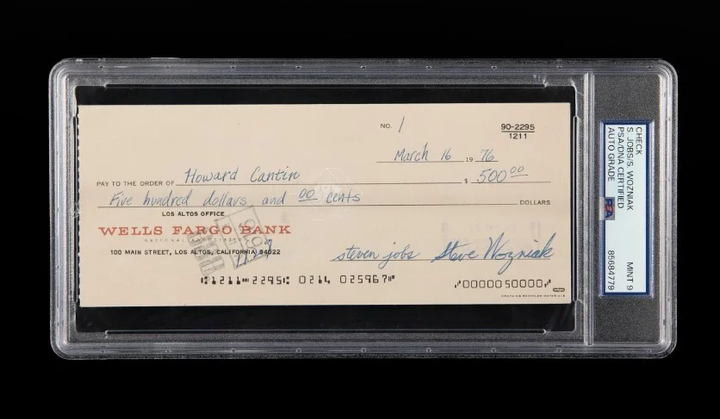 NO. 1
90-2295
1211
March 16 1976
PAY TO THE ORDER OF Howard Cantin $ 500 00
Five hundred dollars and 00 cents DOLLARS
LOS ALTOS OFFICE
WELLS FARGO BANK
NATIONAL ASSOCIATION
100 MAIN STREET, LOS ALTOS, CALIFORNIA 94022
steven jobs Steve Wozniak
⑆1211⑉2295⑆ 0214 025967⑈ ⑈0000050000⑈
CHECK
S. JOBS/S. WOZNIAK
PSA/DNA CERTIFIED
AUTO GRADE
MINT 9
PSA
85684779